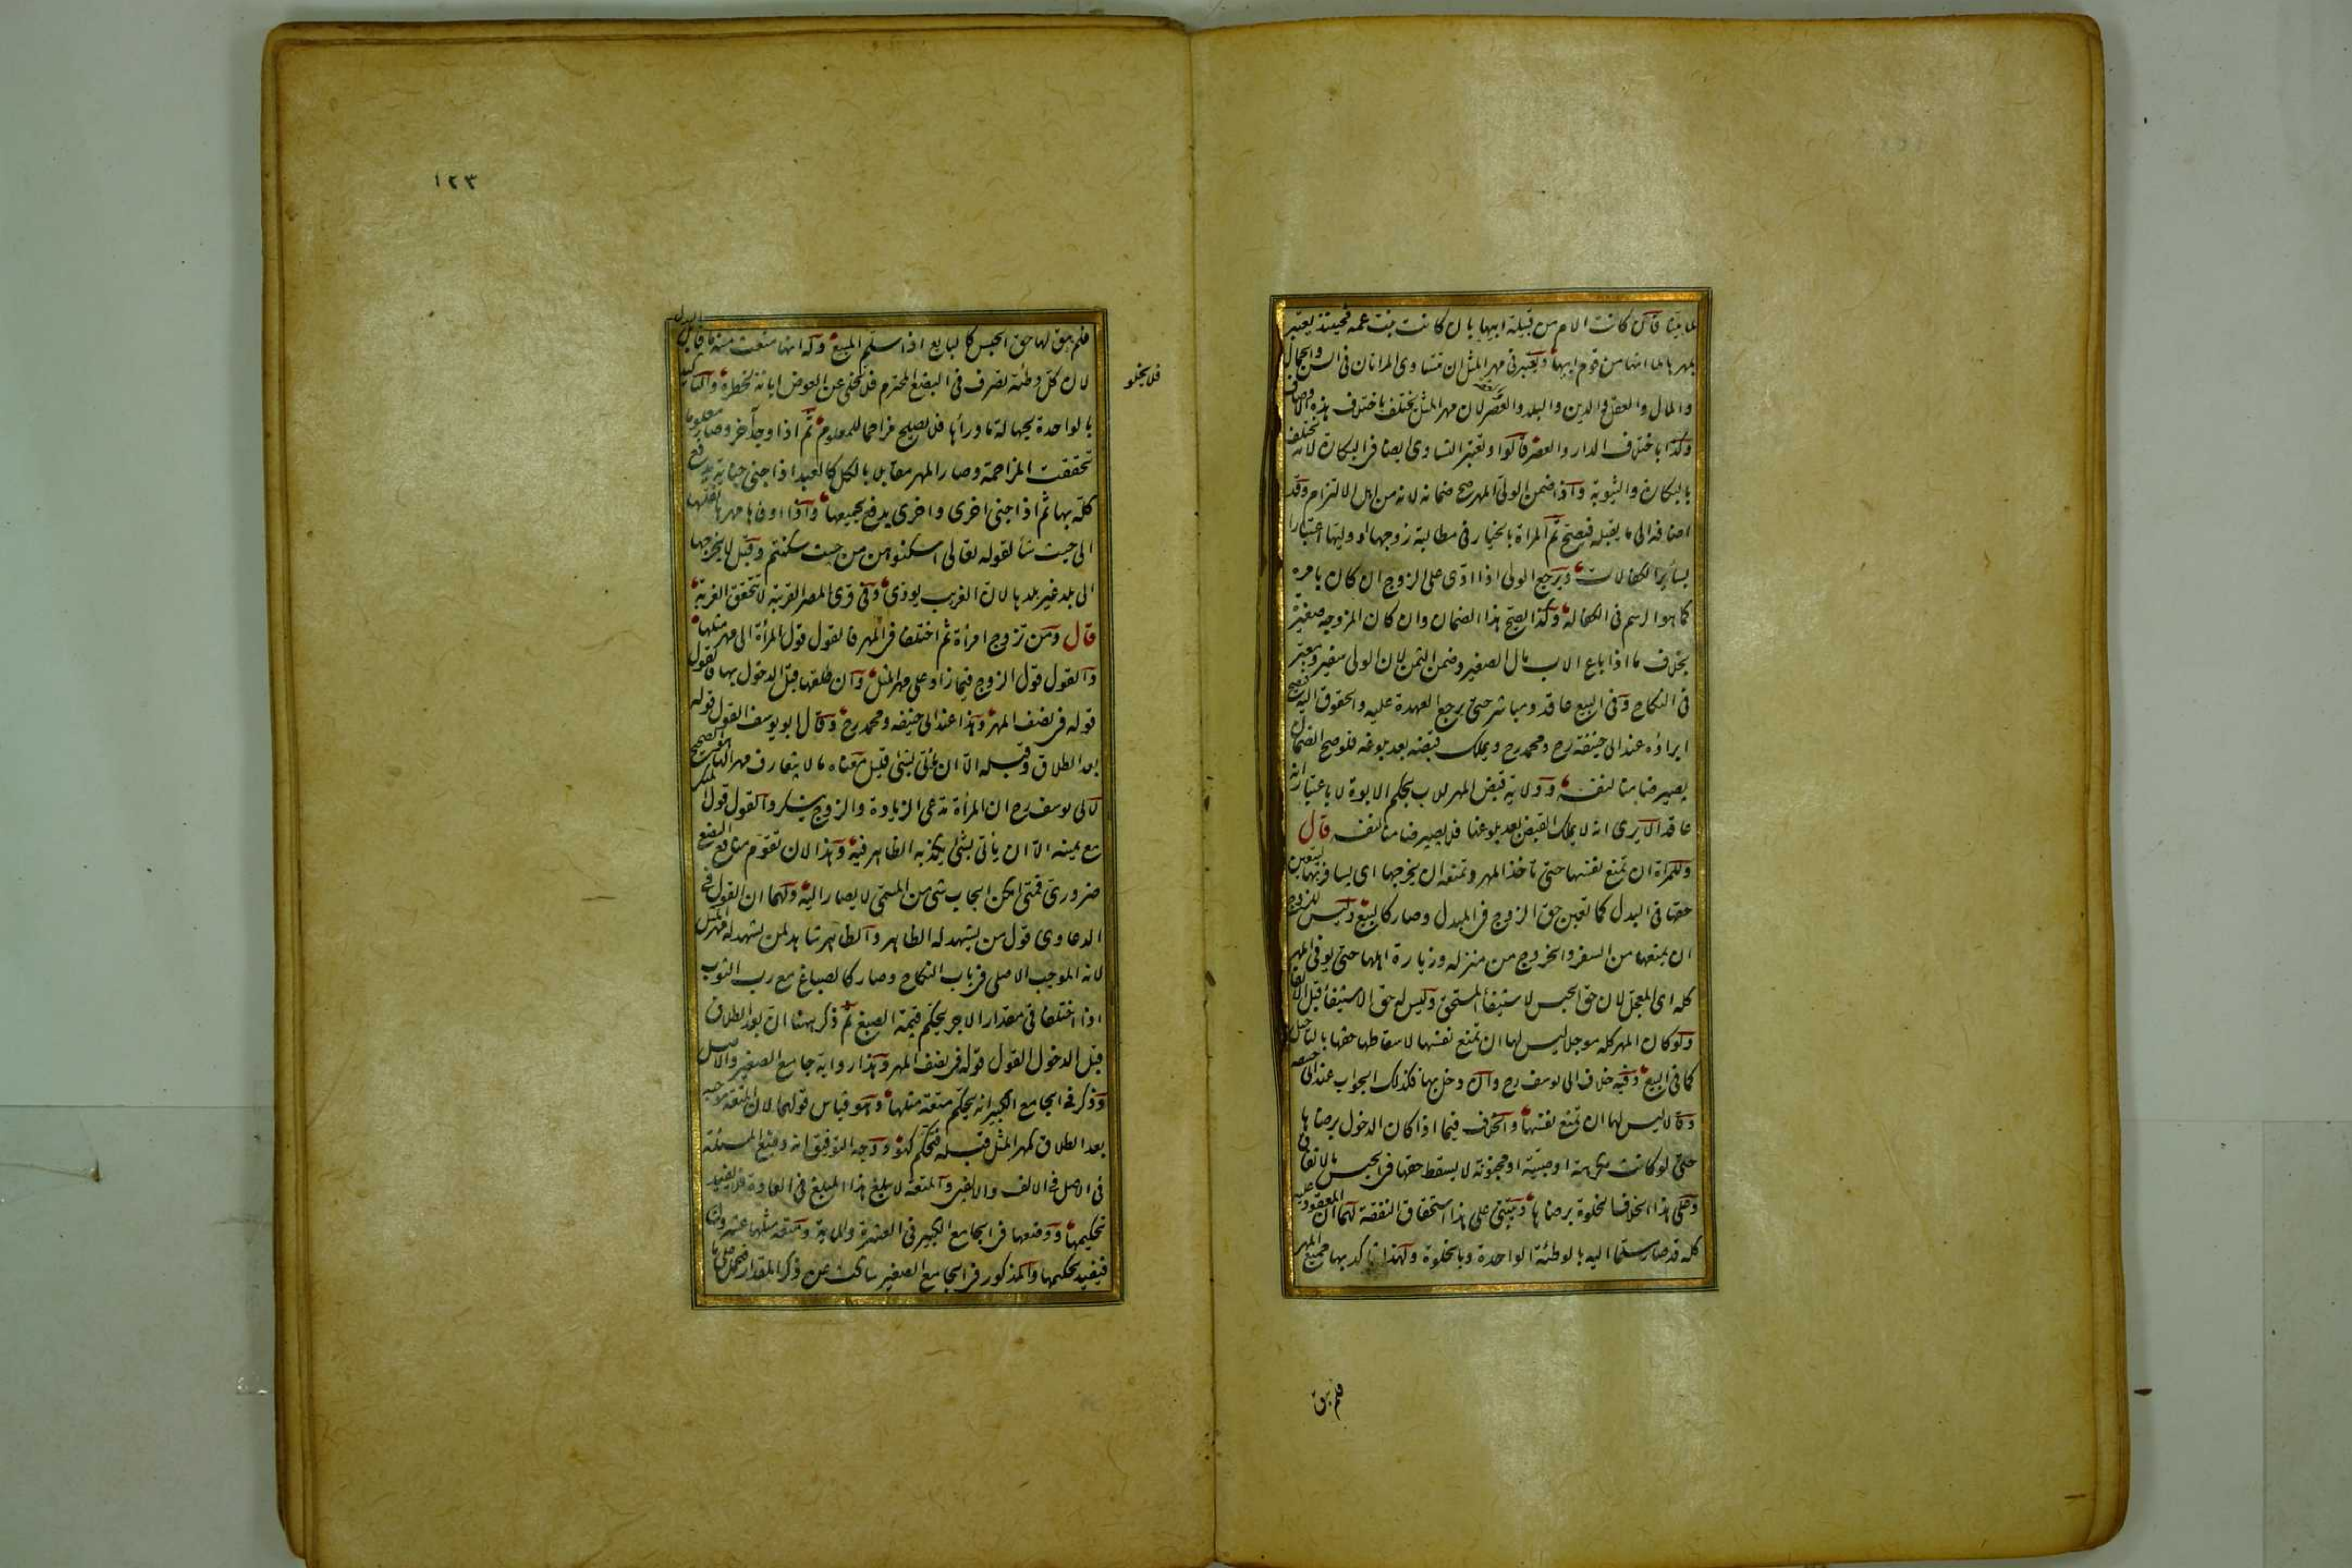 لما بينا فان كانت الام من قبيلة ابيها بان كانت بنت عمه فحينئذ يعتبر
بمهرها لما انها من قوم ابيها ويعتبر فى مهر المثل ان تتساوى المراتان فى السن والجمال
والمال والعقل والدين والبلد والعصر لان مهر المثل يختلف باختلاف هذه الاوصاف
وكذا باختلاف الدار والعصر قالوا ويعتبر التساوى ايضا فى البكارة لانه يختلف
بالبكارة والثيوبة واذا ضمن الولى المهر صح ضمانه لانه من اهل الالتزام وقد
اضافه الى ما يقبله فيصح ثم المراة بالخيار فى مطالبة زوجها او وليها اعتبارا
بسائر الكفالات ويرجع الولى اذا ادى على الزوج ان كان بامره
كما هو الرسم فى الكفالة وكذا يصح هذا الضمان وان كان المزوجة صغيرة
بخلاف ما اذا باع الاب مال الصغير وضمن الثمن لان الولى سفير ومعبر
فى النكاح وفى البيع عاقد ومباشر حتى يرجع العهدة عليه والحقوق اليه فيصح
ابراؤه عند ابى حنيفة رح ومحمد رح ويملك قبضه بعد بلوغه فلو صح الضمان
يصير ضامنا لنفسه وولاية قبض المهر للاب بحكم الابوة لا باعتبار انه
عاقد الا يرى انه لا يملك القبض بعد بلوغها فلا يصير ضامنا لنفسه قال
وللمراة ان تمنع نفسها حتى تأخذ المهر وتمنعه ان يخرجها اى يسافر بها ليتعين
حقها فى البدل كما تعين حق الزوج فى المبدل وصار كالبيع وليس للزوج
ان يمنعها من السفر والخروج من منزله وزيارة اهلها حتى يوفى المهر
كله اى المعجل لان حق الحبس لاستيفأ المستحق وليس له حق الاستيفأ قبل الايفا
ولو كان المهر كله موجلا ليس لها ان تمنع نفسها لاسقاطها حقها بالتاجيل
كما فى البيع وفيه خلاف ابى يوسف رح وان دخل بها فكذلك الجواب عند ابى حنيفه
وقالا ليس لها ان تمنع نفسها والخلاف فيما اذا كان الدخول برضاها
حتى لو كانت مكرهة او صبية او مجنونة لا يسقط حقها فى الحبس بالاتفاق
وعلى هذا الخلاف الخلوة برضاها ويبتنى على هذا استحقاق النفقة لهما ان المعقود عليه
كله قد صار مسلما اليه بالوطئة الواحدة وبالخلوة ولهذا تاكد بها جميع المهر
فلم يبق
١٢٣
فلم يبق لها حق الحبس كالبايع اذا سلم المبيع وله انها منعت منه ما قابل البدل
لان كل وطئة تصرف فى البضع المحترم فلا يخلى عن العوض ابانة لخطره والتاكيد
بالواحدة لجهالة ما ورأها فلا يصلح مزاحما للمعلوم ثم اذا وجد آخر وصار معلوما
تحققت المزاحمة وصار المهر مقابلا بالكل كالعبد اذا جنى جناية يدفع
كله بها ثم اذا جنى اخرى واخرى يدفع بجميعها واذا اوفاها مهرها نقلها
الى حيث شأ لقوله تعالى اسكنوهن من حيث سكنتم وقيل لا يخرجها
الى بلد غير بلدها لان الغريب يوذى وفى قرى المصر القريبة لا تتحقق الغربة
قال ومن تزوج امرأة ثم اختلفا فى المهر فالقول قول المرأة الى مهر مثلها
والقول قول الزوج فيما زاد على مهر المثل وان طلقها قبل الدخول بها فالقول
قوله فى نصف المهر وهذا عند ابى حنيفه ومحمد رح وقال ابو يوسف القول قوله
بعد الطلاق وقبله الا ان يأتى بشئ قليل معناه ما لا يتعارف مهرا لها هو الصحيح
لابى يوسف رح ان المرأة تدعى الزيادة والزوج ينكر والقول قول المنكر
مع يمينه الا ان ياتى بشئ يكذبه الظاهر فيه وهذا لان تقوم منافع البضع
ضرورى فمتى امكن ايجاب شى من المسمى لا يصار اليه ولهما ان القول فى
الدعاوى قول من يشهد له الظاهر والظاهر شاهد لمن يشهد له مهر المثل
لانه الموجب الاصلى فى باب النكاح وصار كالصباغ مع رب الثوب
اذا اختلفا فى مقدار الاجر يحكم قيمة الصبغ ثم ذكر ههنا ان بعد الطلاق
قبل الدخول القول قوله فى نصف المهر وهذا رواية جامع الصغير والاصل
وذكر فى الجامع الكبير انه يحكم متعة مثلها وهو قياس قولهما لان المتعة موجبه
بعد الطلاق كمهر المثل قبله فتحكم كهو ووجه التوفيق انه وضع المسئلة
فى الاصل فى الالف والالفين والمتعة لا يبلغ هذا المبلغ فى العادة فلا يفيد
تحكيمها ووضعها فى الجامع الكبير فى العشرة والماية ومتعة مثلها عشرون
فيفيد تحكيمها والمذكور فى الجامع الصغير ساكت عن ذكر المقدار فيحمل على ما
فلا يخلو